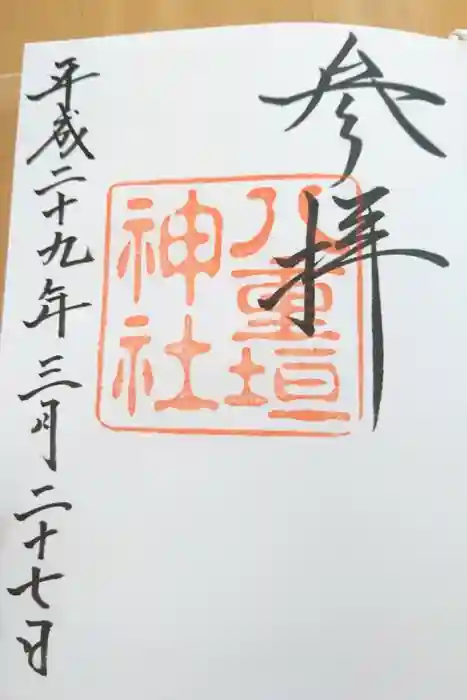 参拝
八重垣
神社
平成二十九年三月二十七日